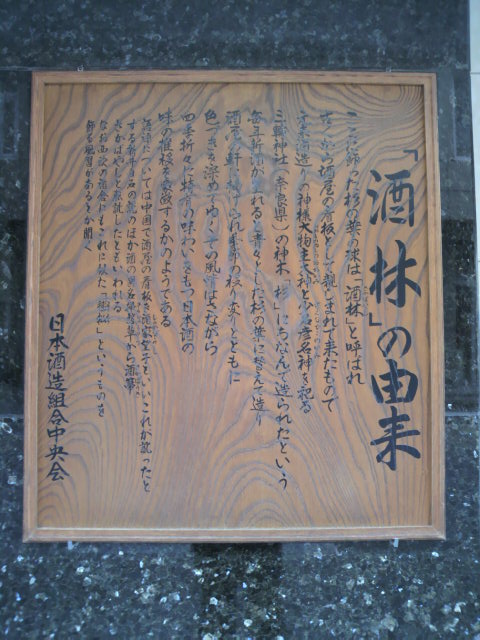 「酒林」の由来
ここに飾った杉の葉の球は「酒林」と呼ばれ
古くから酒屋の看板として親しまれて来たもので
酒造りの神様大物主大神と少彦名神を祀る
三輪神社(奈良県)の神木「杉」にちなんで造られたという
毎年新酒が売れると青々とした杉の葉に替えて造り
酒家の軒に掲げられ季節の移り変りとともに
色つきを深めてゆくその風情はさながら
四季折々に格別の味わいをもつ日本酒の
味の推移を象徴するかのようである
酒林については中国で酒屋の看板を酒家望子といいこれが訛ったと
する説
さかばやしと転訛したともいわれる
なお西欧の宿舎にもこれに似た というものを
飾る風習があるやに聞く
日本酒造組合中央会